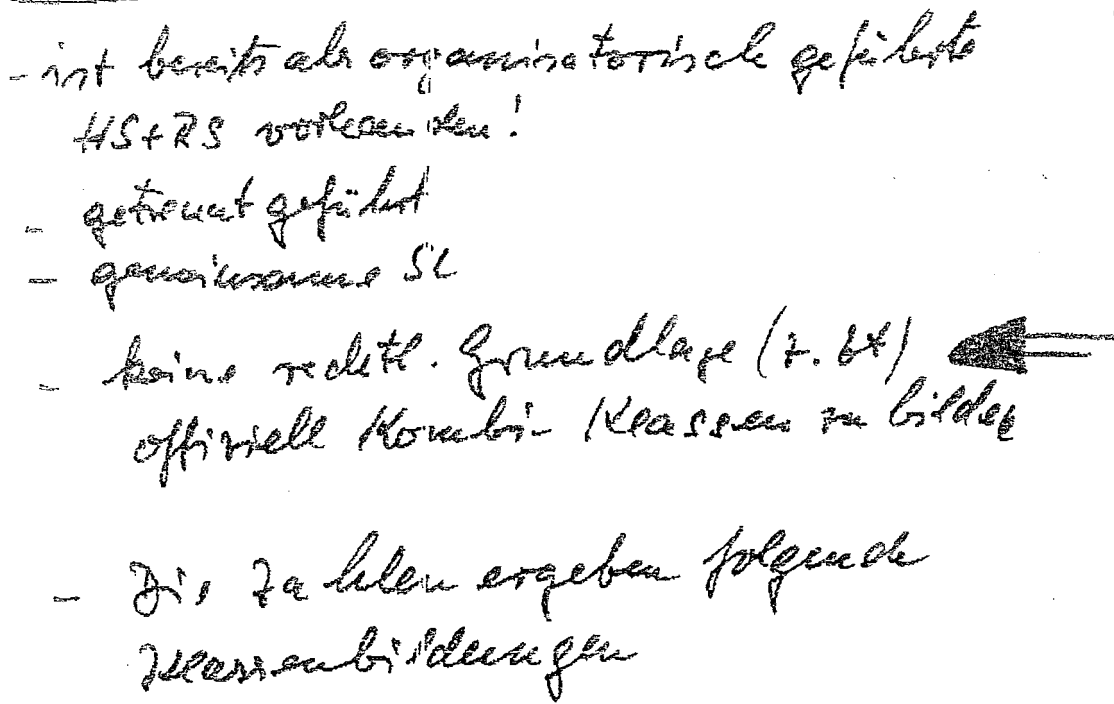 - ist bereits als organisatorisch geführte
HS+RS vorhanden!
- getrennt geführt
- gemeinsame SL
- keine rechtl. Grundlage (z. Zt)
offiziell Kombi- Klassen zu bilden
- Die Zahlen ergeben folgende
Klassenbildungen